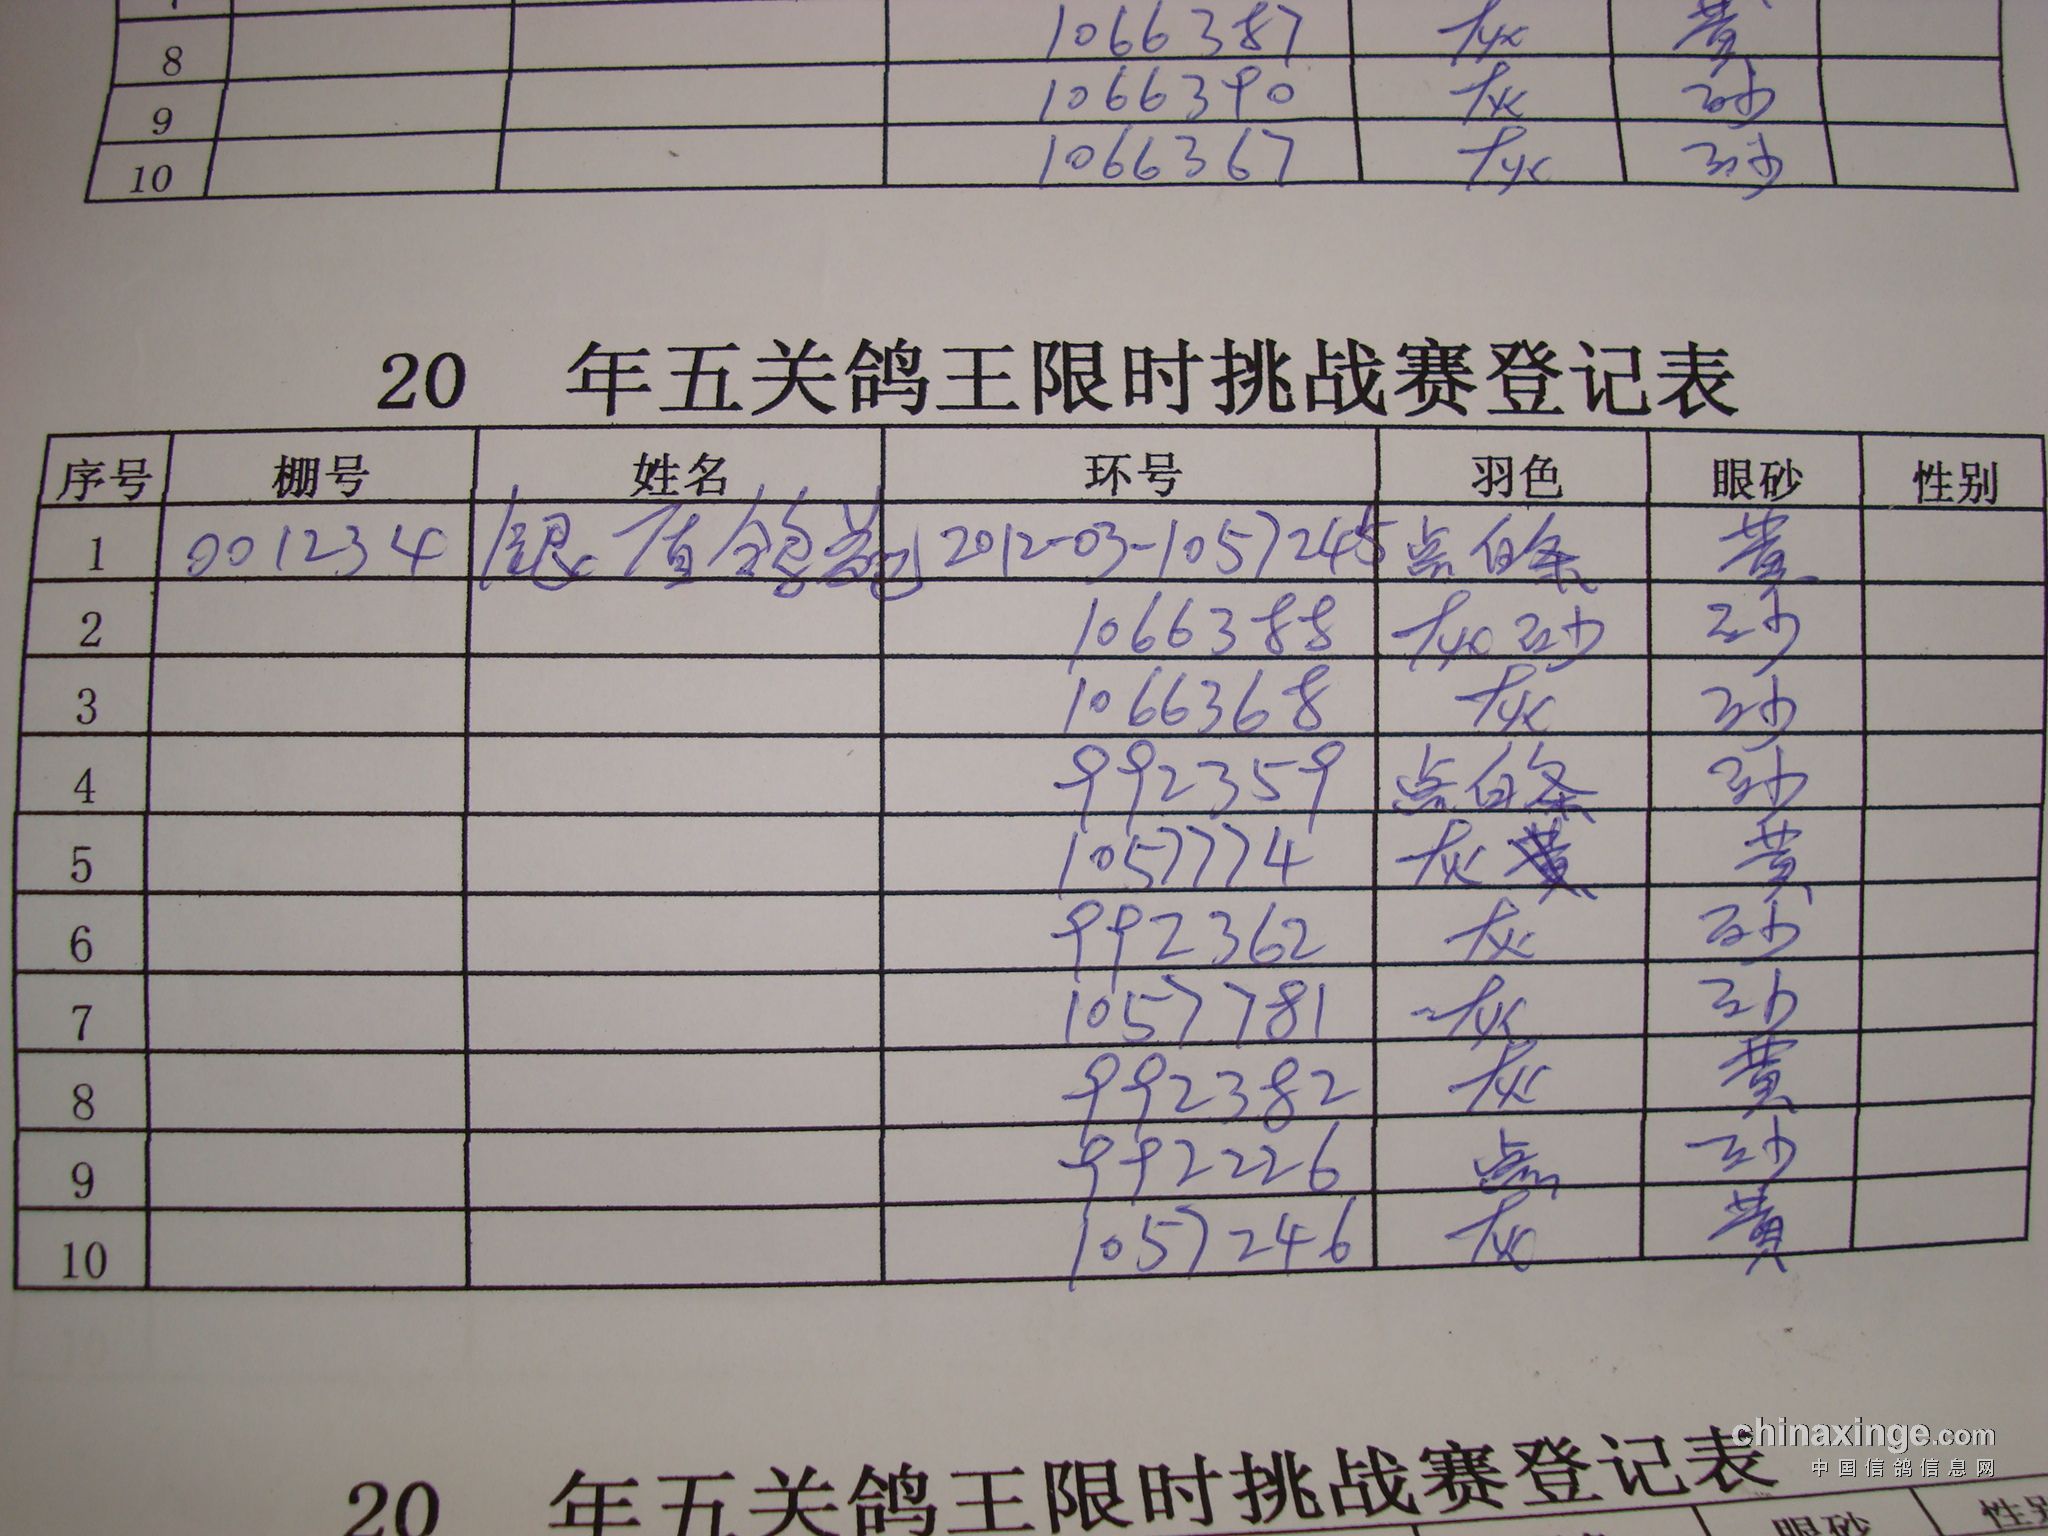 8 1066387 灰 黄
9 1066390 灰 砂
10 1066367 灰 砂
20 年五关鸽王限时挑战赛登记表
序号 棚号 姓名 环号 羽色 眼砂 性别
1 001234 鸽 2012-03-1057245 点白条 黄
2 1066388 灰 砂 砂
3 1066368 灰 砂
4 992359 点白条 砂
5 1057774 灰 黄
6 992362 灰 砂
7 1057781 灰 砂
8 992382 灰 黄
9 992226 点 砂
10 1057246 灰 黄
chinaxinge.com
中国信鸽信息网
20 年五关鸽王限时挑战赛登记表
眼砂 性别